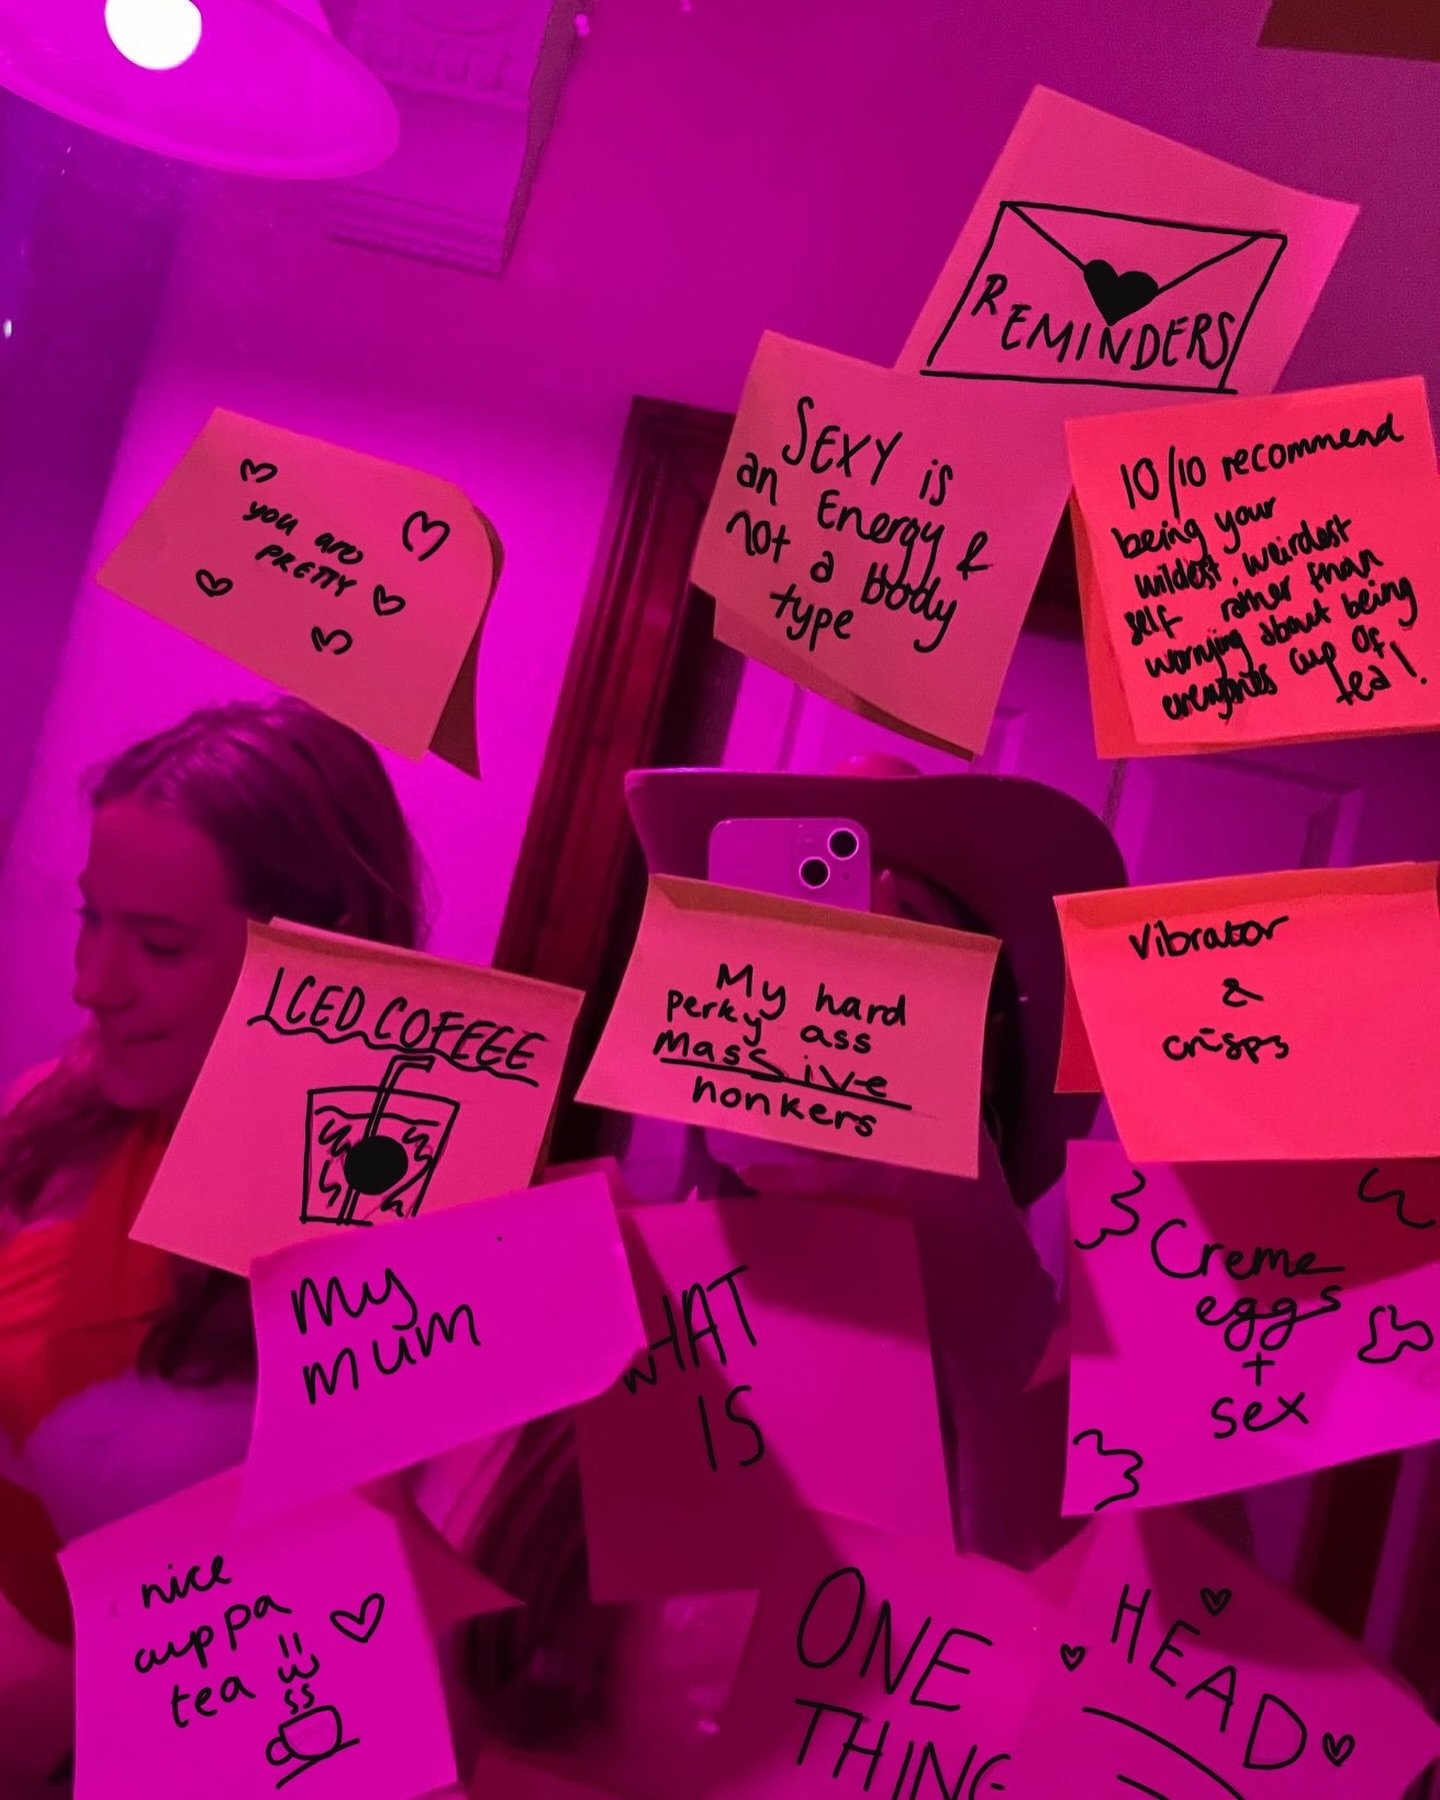 REMINDERS
SEXY is
an Energy &
not a body
type
10/10 recommend
being your
wildest, weirdest
self rather than
worrying about being
everyones cup of
tea!
you are
PRETTY
ICED COFFEE
My hard
perky ass
massive
honkers
Vibrator
&
crisps
My
mum
WHAT
IS
Creme
eggs
+
sex
nice
cuppa
tea
ONE
THING
HEAD